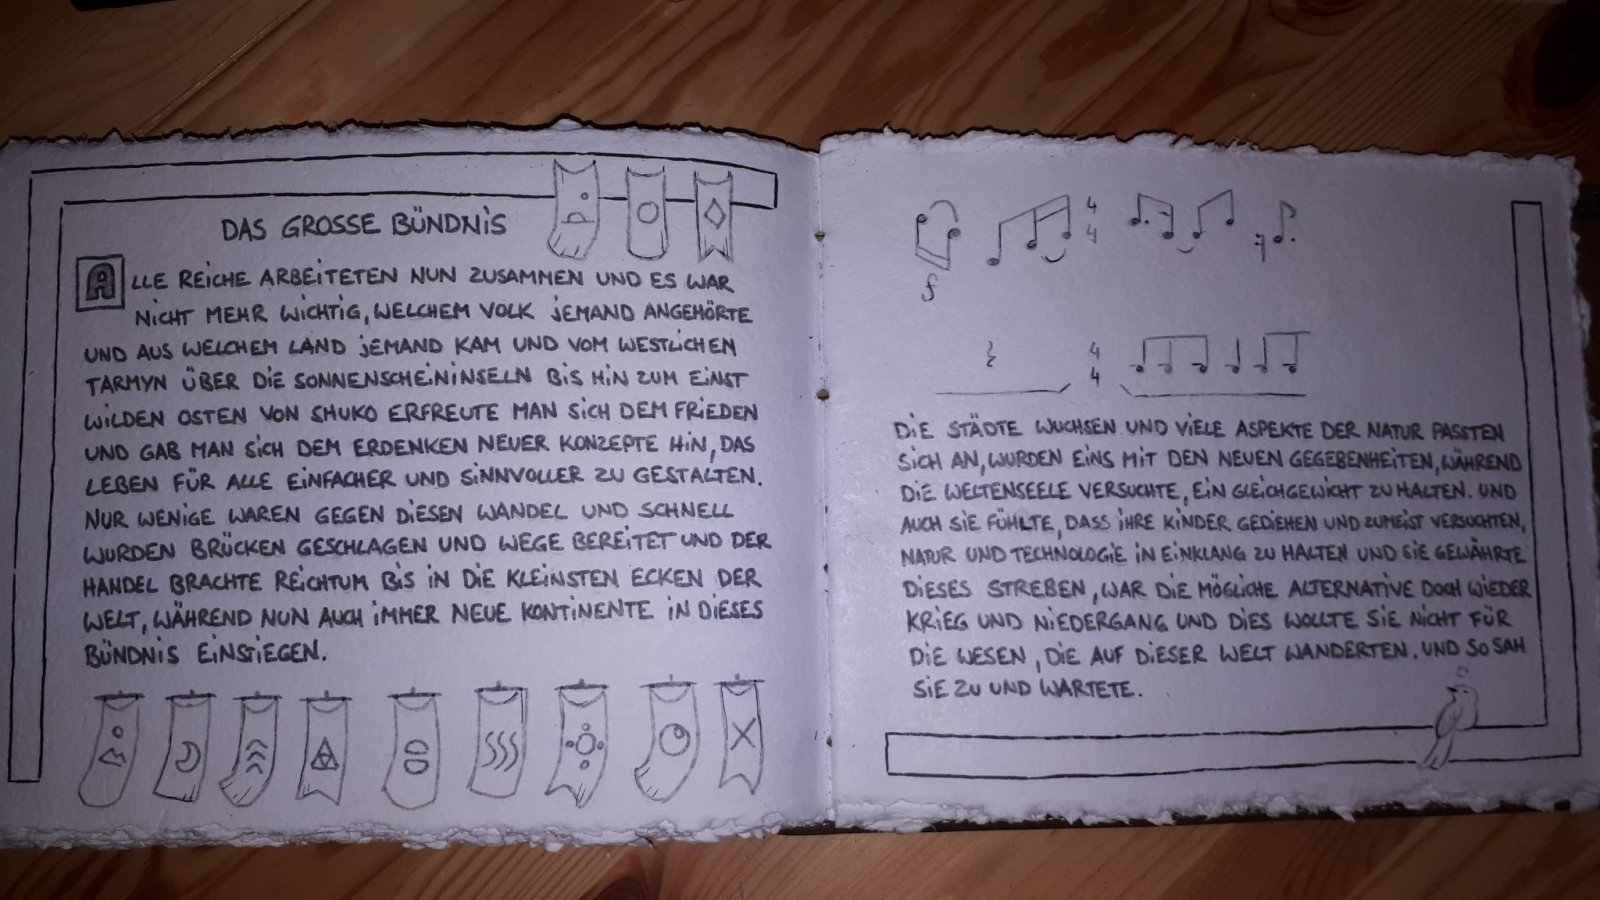 DAS GROSSE BÜNDNIS
ALLE REICHE ARBEITETEN NUN ZUSAMMEN UND ES WAR
NICHT MEHR WICHTIG, WELCHEM VOLK JEMAND ANGEHÖRTE
UND AUS WELCHEM LAND JEMAND KAM UND VOM WESTLICHEN
TARMYN ÜBER DIE SONNENSCHEININSELN BIS HIN ZUM EINST
WILDEN OSTEN VON SHUKO ERFREUTE MAN SICH DEM FRIEDEN
UND GAB MAN SICH DEM ERDENKEN NEUER KONZEPTE HIN, DAS
LEBEN FÜR ALLE EINFACHER UND SINNVOLLER ZU GESTALTEN.
NUR WENIGE WAREN GEGEN DIESEN WANDEL UND SCHNELL
WURDEN BRÜCKEN GESCHLAGEN UND WEGE BEREITET UND DER
HANDEL BRACHTE REICHTUM BIS IN DIE KLEINSTEN ECKEN DER
WELT, WÄHREND NUN AUCH IMMER NEUE KONTINENTE IN DIESES
BÜNDNIS EINSTIEGEN.
4
4
f
4
4
DIE STÄDTE WUCHSEN UND VIELE ASPEKTE DER NATUR PASSTEN
SICH AN, WURDEN EINS MIT DEN NEUEN GEGEBENHEITEN, WÄHREND
DIE WELTENSEELE VERSUCHTE, EIN GLEICHGEWICHT ZU HALTEN. UND
AUCH SIE FÜHLTE, DASS IHRE KINDER GEDIEHEN UND ZUMEIST VERSUCHTEN,
NATUR UND TECHNOLOGIE IN EINKLANG ZU HALTEN UND SIE GEWÄHRTE
DIESES STREBEN, WAR DIE MÖGLICHE ALTERNATIVE DOCH WIEDER
KRIEG UND NIEDERGANG UND DIES WOLLTE SIE NICHT FÜR
DIE WESEN, DIE AUF DIESER WELT WANDERTEN. UND SO SAH
SIE ZU UND WARTETE.